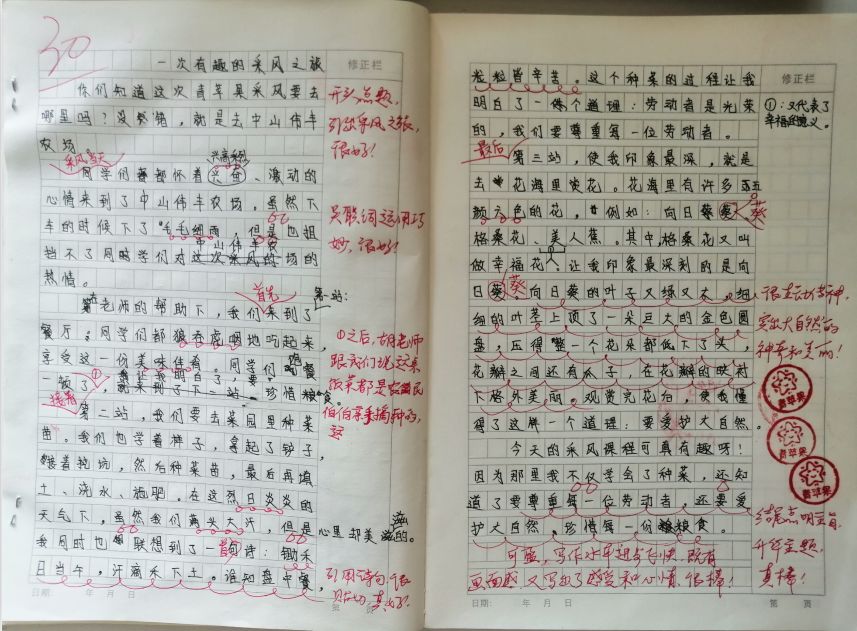 30
一次有趣的采风之旅
修正栏
你们知道这次青苹果采风要去
哪里吗？没错，就是去中山伟丰
农场。
开头点题，
引出采风之旅，
很好！
采风当天
兴高采烈
同学们都怀着兴奋、激动的
心情来到了中山伟丰农场。虽然下
车的时候下了毛毛细雨，但是也阻
挡不了同时学们对这次采风的
中山伟丰农
场的
热情。
关联词运用巧
妙，很好！
首先
第一站：
在老师的帮助下，我们来到了
餐厅：同学们都狼吞虎咽地吃起来，
享受这一份美味佳肴。同学们
一顿了，
就来到了下一站
珍惜粮食。
①之后，胡老师
跟我们说这桌
饭菜都是农民
伯伯亲手播种的，
接着
第二站，我们要去菜园里种菜
苗。我们也学着样子，拿起了铲子，
接着挖坑，然后种菜苗，最后再填
土、浇水、施肥。在这烈日炎炎的
天气下，虽然我们满头大汗，但是心里却美滋滋的。
我同时也联想到了一首诗：锄禾
日当午，汗滴禾下土。谁知盘中餐，
引用诗句，很
贴切，真好！
日期： 年 月 日
第 页
修正栏
粒粒皆辛苦。这个种菜的过程让我
明白了一个道理：劳动者是光荣
的，我们要尊重每一位劳动者。
①：又代表了
幸福的意义。
最后
第三站，使我印象最深，就是
去花海里赏花。花海里有许多五
颜六色的花，例如：向日葵
葵
格桑花、美人蕉。其中格桑花又叫
做幸福花①。让我印象最深刻的是向
日葵
葵
。向日葵的叶子又绿又大，细
细的叶茎上顶了一朵巨大的金色圆
盘，压得整一个花朵都低下了头，
花瓣之间还有瓜子，在花瓣的映衬
下格外美丽。观赏完花后，使我懂
得了这样一个道理：要爱护大自然。
很生动传神，
突出大自然的
神奇和美丽！
青苹果
青苹果
青苹果
今天的采风课程可真有趣呀！
因为那里我不仅学会了种菜，还知
道了要尊重每一位劳动者，还要爱
护大自然，珍惜每一份粮食。
结尾点明主旨，
升华主题，
真棒！
可盈，写作水平进步飞快，既有
画面感，又写出了感受和心情，很棒！
日期： 年 月 日
第 页